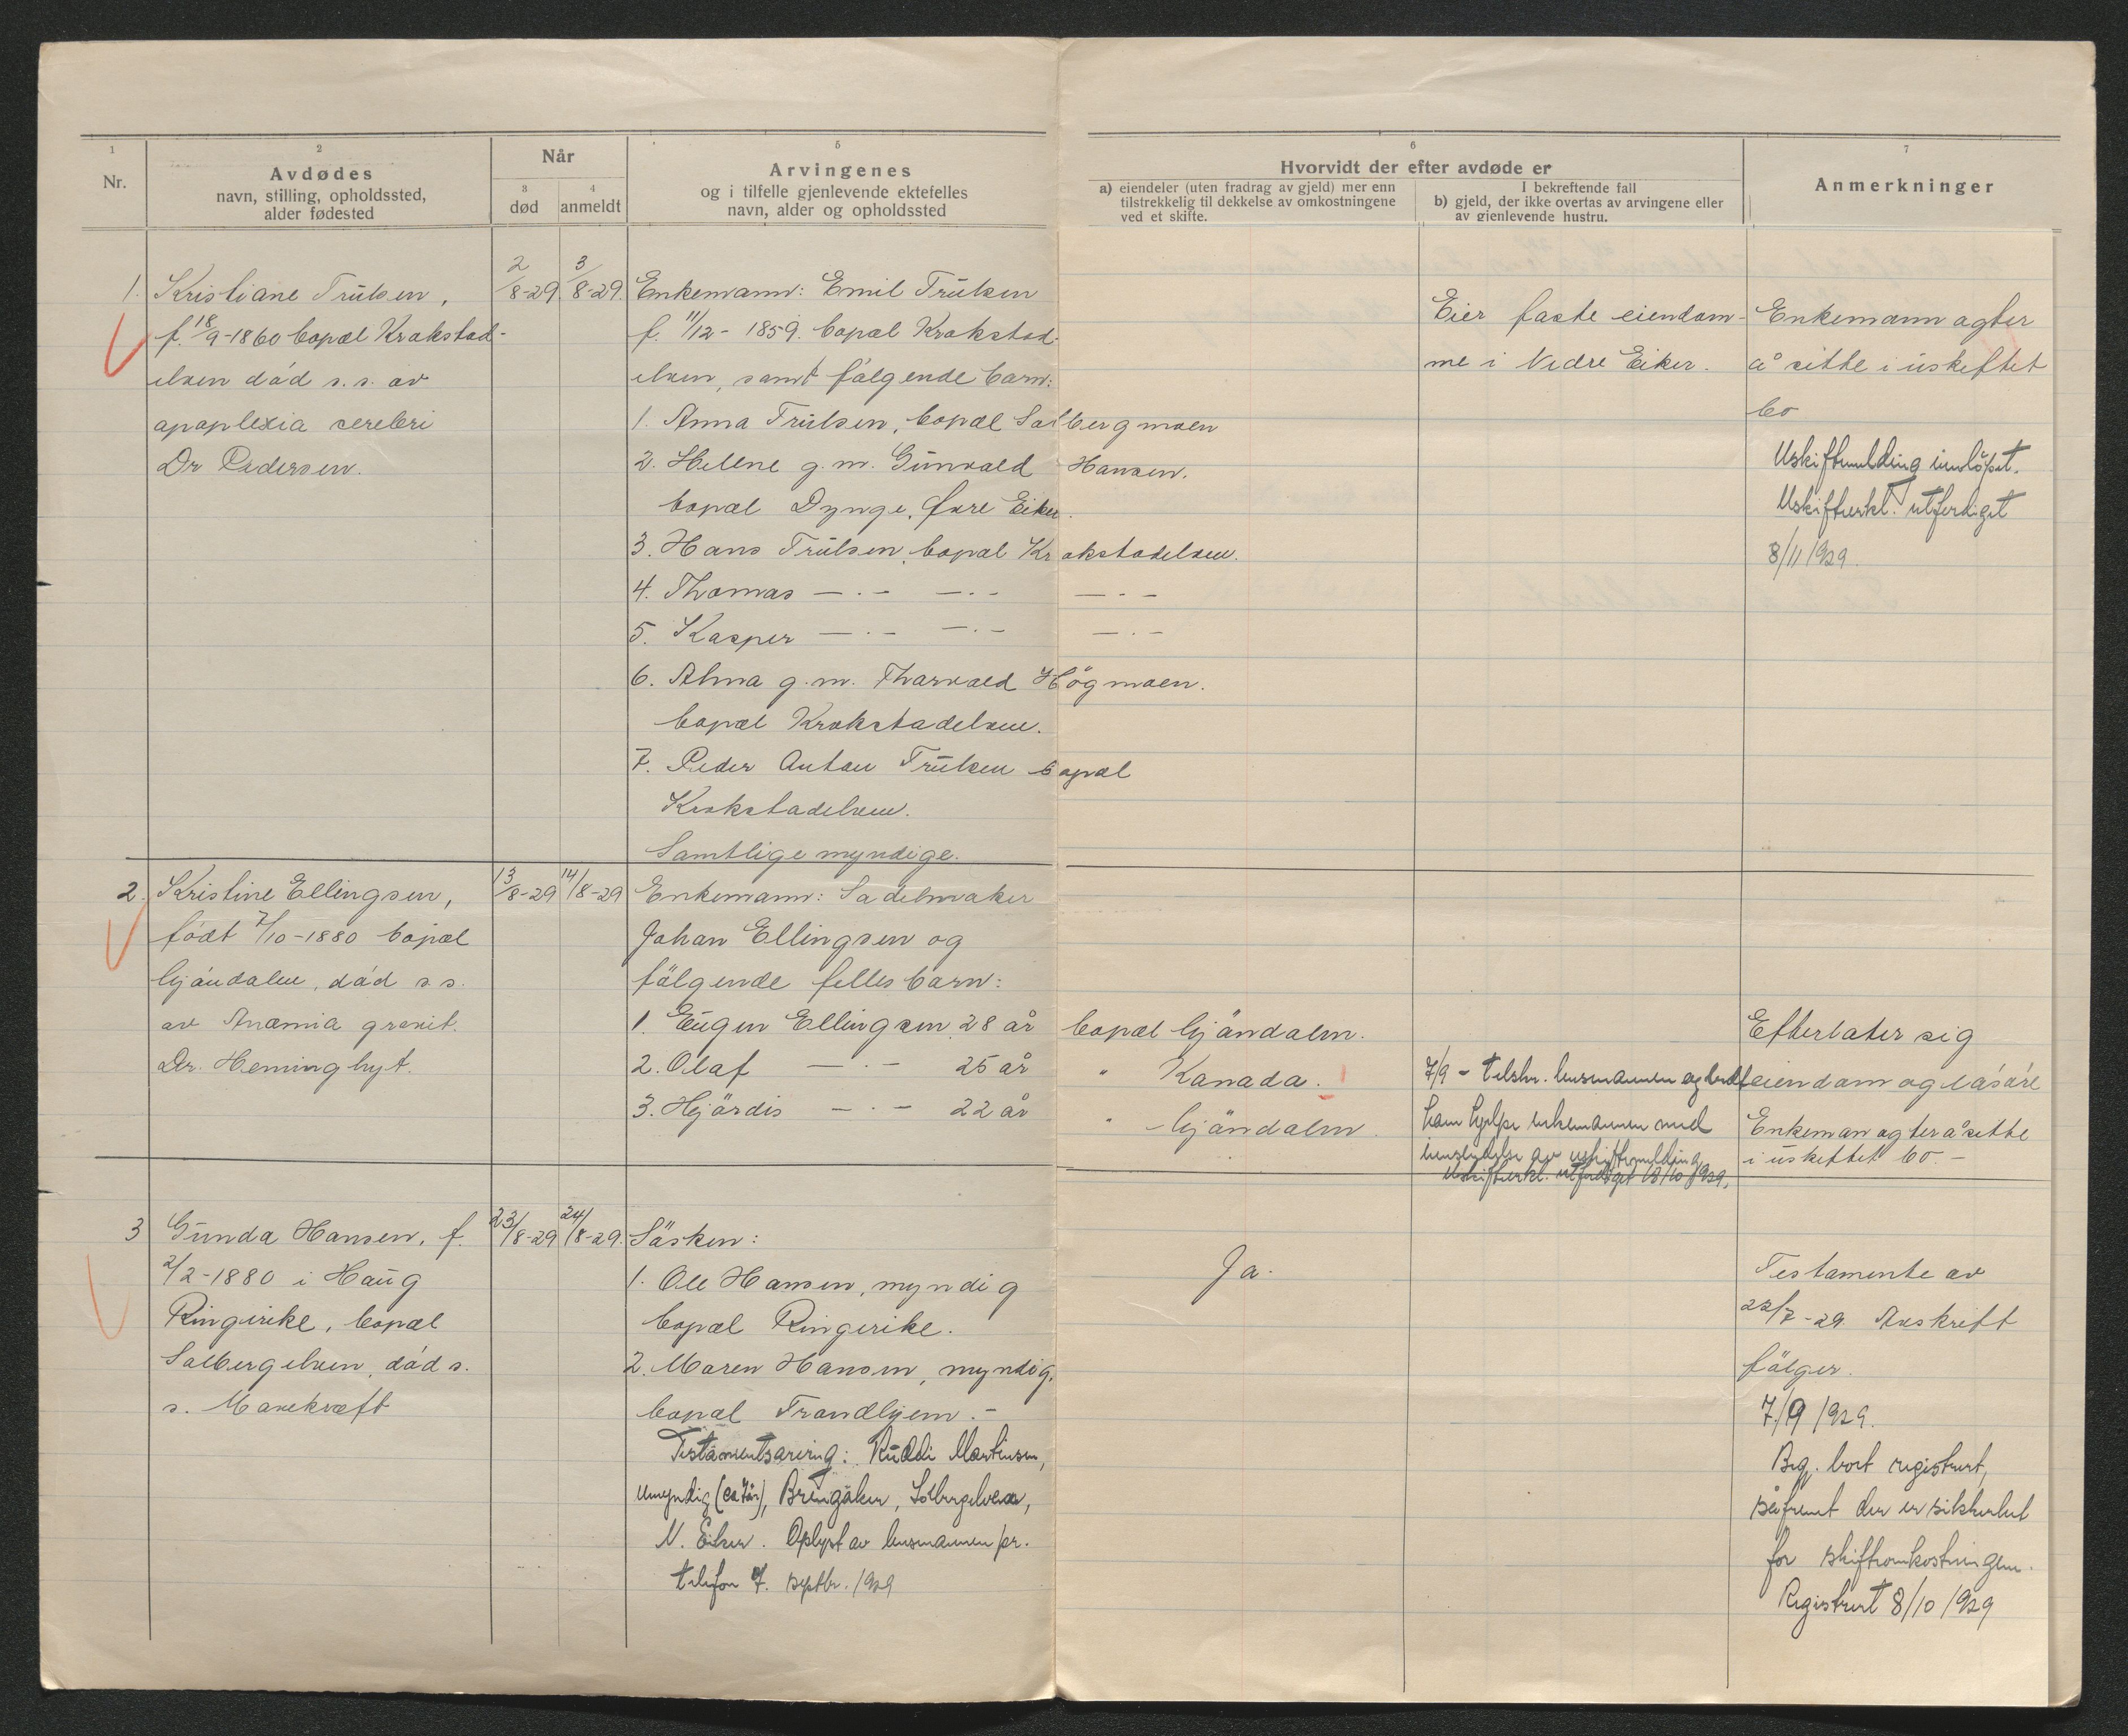 1
Nr.
2
Avdødes
navn, stilling, opholdssted,
alder fødested
Når
3
død
4
anmeldt
5
Arvingenes
og i tilfelle gjenlevende ektefelles
navn, alder og opholdssted
6
Hvorvidt der efter avdøde er
a) eiendeler (uten fradrag av gjeld) mer enn
tilstrekkelig til dekkelse av omkostningene
ved et skifte.
I bekreftende fall
b) gjeld, der ikke overtas av arvingene eller
av gjenlevende hustru.
7
Anmerkninger
1. Kristiane Trulsen,
f. 18/9-1860 bopæl Krokstad-
elven død s. s. av
apoplexia cerebri
Dr Pedersen.
2/8-29
3/8-29.
Enkemann: Emil Trulsen
f. 11/12-1859. bopæl Krokstad-
elven, samt følgende barn:
1. Anna Trulsen, bopæl Solbergmoen
2. Hellene g. m. Gunvald Hansen.
bopæl Dynge, Øvre Eiker.
3. Hans Trulsen, bopæl Krokstadelven.
4. Thomas —·— —·— —·—
5. Kasper —·— —·— —·—
6. Alma g. m. Thorvald Högmoen.
bopæl Krokstadelven.
7. Peder Anton Trulsen bopæl
Krokstadelven.
Samtlige myndige.
Eier faste eiendom-
me i Nedre Eiker.
Enkemann agter
å sitte i uskiftet
bo
Uskiftemelding innløpet.
Uskifteerkl. utferdiget
8/11 1929.
2. Kristine Ellingsen,
født 7/10-1880 bopæl
Mjøndalen, død s. s.
av Anæmia gravit.
Dr. Heminghyt.
13/8-29
14/8-29
Enkemann: Sadelmaker
Johan Ellingsen og
følgende felles barn:
1. Eugen Ellingsen 28 år bopæl Mjøndalen.
2. Olaf —·— 25 år " Kanada.
3. Hjördis —·— 22 år " Mjøndalen.
7/9 - tilskr. lensmannen og bedt
ham hjelpe enkemannen med
innsendelse av uskiftemelding
Uskifteerkl. utferdiget 18/10 1929.
Efterlater sig
eiendom og løsøre
Enkeman agter å sitte
i uskiftet bo.-
3 Gunda Hansen, f.
2/2-1880 i Haug
Ringerike, bopæl
Solbergelven, død s.
s. Mavekræft
23/8-29
24/8-29.
Søsken:
1. Ole Hansen, myndig
bopæl Ringerike.
2. Maren Hansen, myndig,
bopæl Trondhjem.-
Testamentsarving: Ruddi Martinsen,
umyndig (ca 7 år), Brengåker, Solbergelven,
N. Eiker. Oplyst av lensmannen pr.
telefon 7. septbr. 1929
Ja.
Testamente av
22/7-29 Avskrift
følger.
7/9 1929.
Beg. bort registrert,
såfremt der er sikkerhet
for skifteomkostningen.
Registrert 8/10 1929